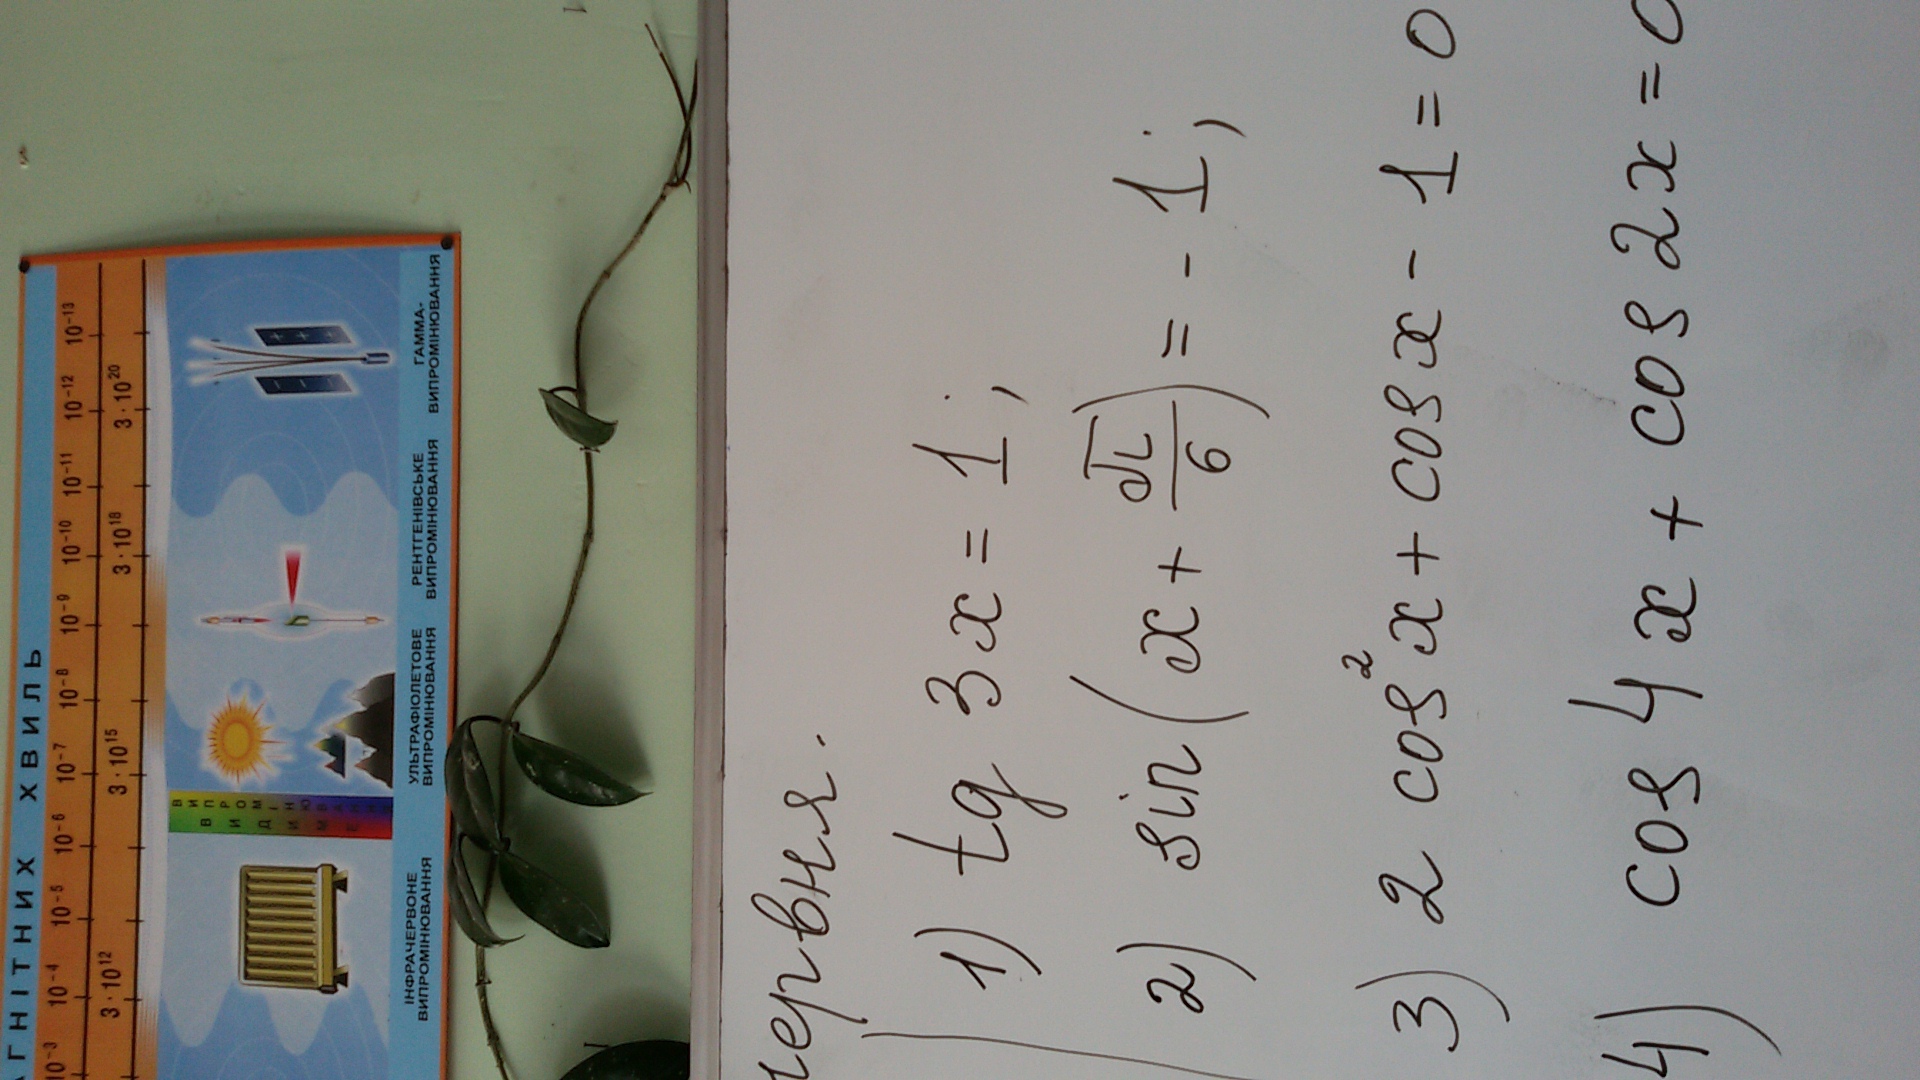 АГНІТНИХ ХВИЛЬ
10⁻³ 10⁻⁴ 10⁻⁵ 10⁻⁶ 10⁻⁷ 10⁻⁸ 10⁻⁹ 10⁻¹⁰ 10⁻¹¹ 10⁻¹² 10⁻¹³
3·10¹² 3·10¹⁵ 3·10¹⁸ 3·10²⁰
ІНФРАЧЕРВОНЕ ВИПРОМІНЮВАННЯ
УЛЬТРАФІОЛЕТОВЕ ВИПРОМІНЮВАННЯ
РЕНТГЕНІВСЬКЕ ВИПРОМІНЮВАННЯ
ГАММА-ВИПРОМІНЮВАННЯ
червня.
1) tg 3x = 1;
2) sin(x + π/6) = - 1;
3) 2 cos² x + cos x - 1 = 0
4) cos 4x + cos 2x = 0